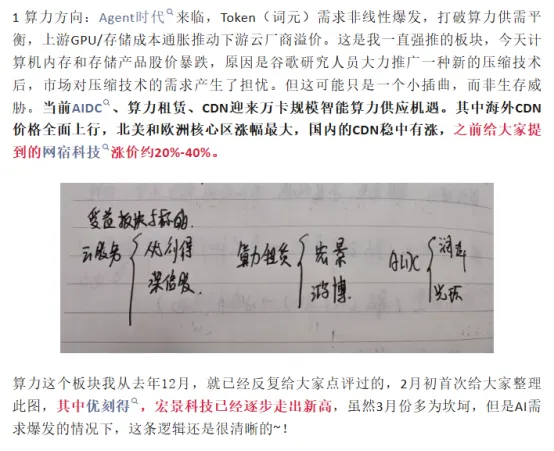 1 算力方向：Agent时代来临，Token（词元）需求非线性爆发，打破算力供需平
衡，上游GPU/存储成本通胀推动下游云厂商溢价。这是我一直强推的板块，今天计
算机内存和存储产品股价暴跌，原因是谷歌研究人员大力推广一种新的压缩技术
后，市场对压缩技术的需求产生了担忧。但这可能只是一个小插曲，而非生存威
胁。当前AIDC、算力租赁、CDN迎来万卡规模智能算力供应机遇。其中海外CDN
价格全面上行，北美和欧洲核心区涨幅最大，国内的CDN稳中有涨，之前给大家提
到的网宿科技涨价约20%-40%。
受益板块与标的
云服务 优刻得 算力租赁 宏景 AIDC 润建
深信服 鸿博 光环
算力这个板块我从去年12月，就已经反复给大家点评过的，2月初首次给大家整理
此图，其中优刻得，宏景科技已经逐步走出新高，虽然3月份多为坎坷，但是AI需
求爆发的情况下，这条逻辑还是很清晰的~！